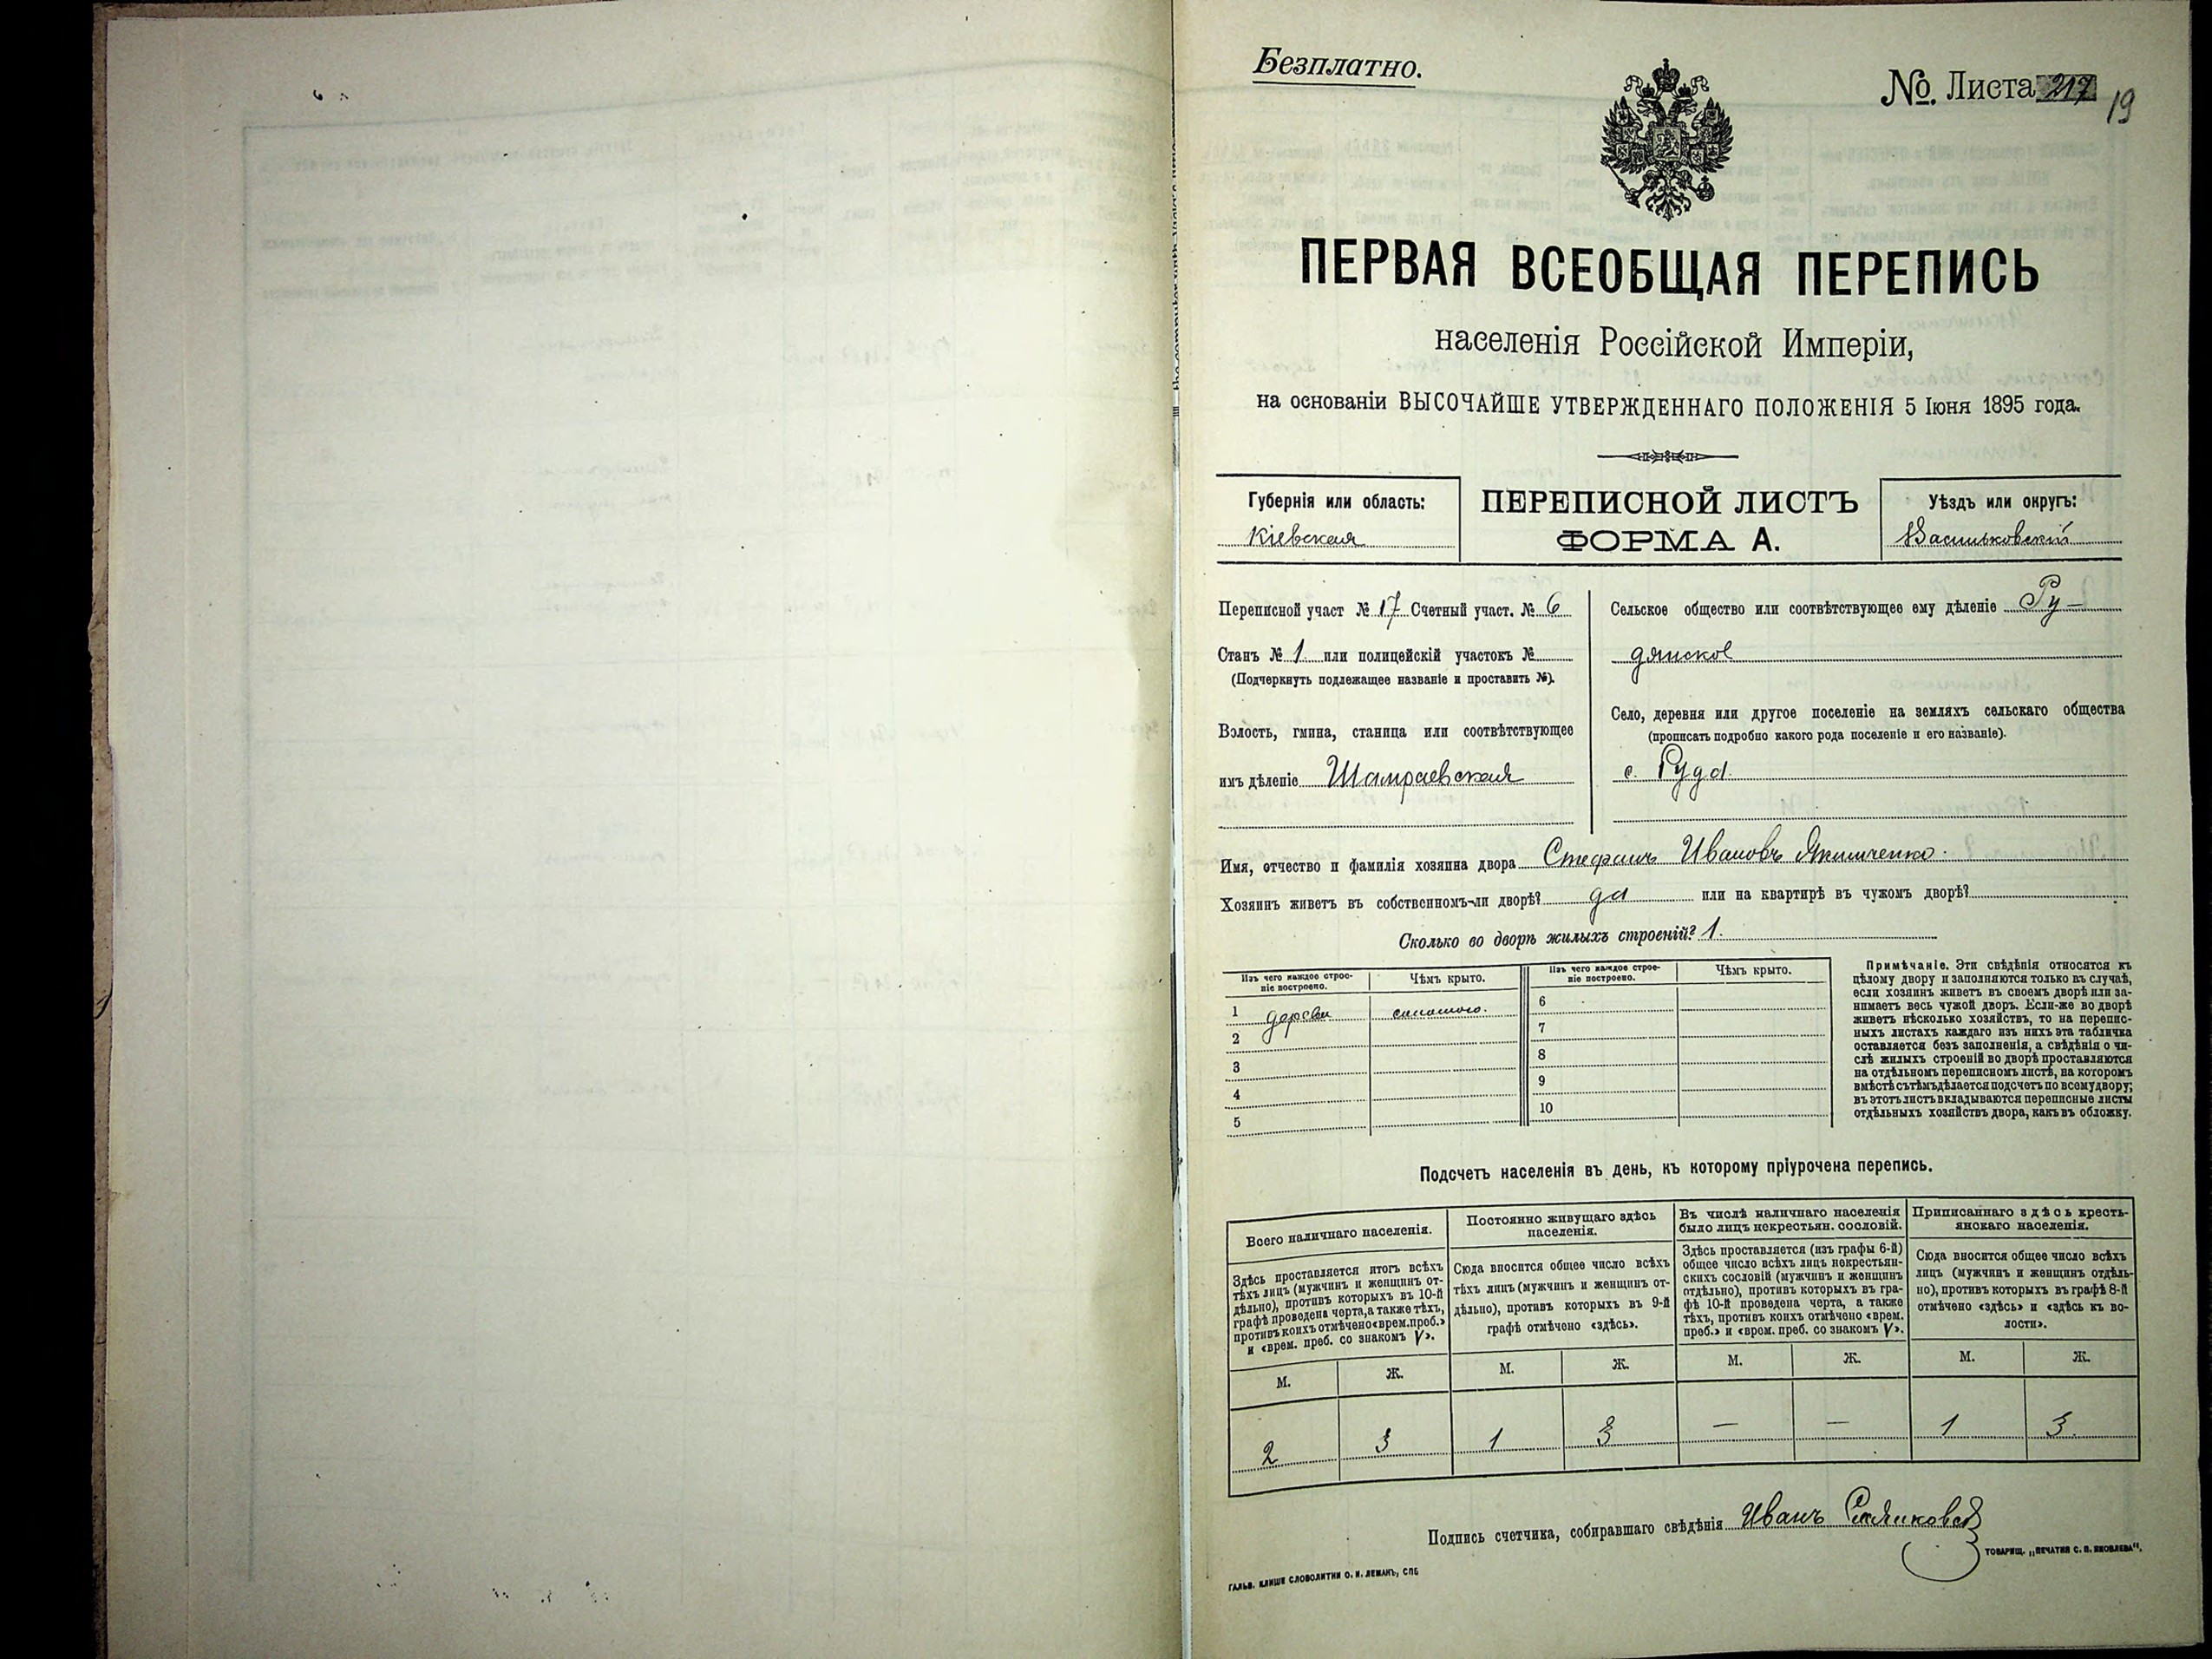 Безплатно.
№ Листа 217
19
ПЕРВАЯ ВСЕОБЩАЯ ПЕРЕПИСЬ
населенія Россійской Имперіи,
на основаніи ВЫСОЧАЙШЕ УТВЕРЖДЕННАГО ПОЛОЖЕНІЯ 5 Іюня 1895 года.
Губернія или область:
Кіевская
ПЕРЕПИСНОЙ ЛИСТЪ
ФОРМА А.
Уѣздъ или округъ:
Васильковскій
Переписной участ № 17 Счетный участ. № 6
Станъ № 1 или полицейскій участокъ №
(Подчеркнуть подлежащее названіе и проставить №).
Волость, гмина, станица или соотвѣтствующее
имъ дѣленіе Шамраевская
Сельское общество или соотвѣтствующее ему дѣленіе Ру-
дянское
Село, деревня или другое поселеніе на земляхъ сельскаго общества
(прописать подробно какого рода поселеніе и его названіе).
с. Руда
Имя, отчество и фамилія хозяина двора Стефанъ Ивановъ
Хозяинъ живетъ въ собственномъ-ли дворѣ? да или на квартирѣ въ чужомъ дворѣ?
Сколько во дворѣ жилыхъ строеній? 1.
Изъ чего каждое строе-
ніе построено.
Чѣмъ крыто.
Изъ чего каждое строе-
ніе построено.
Чѣмъ крыто.
1 соломою.
2
3
4
5
6
7
8
9
10
Примѣчаніе. Эти свѣдѣнія относятся къ
цѣлому двору и заполняются только въ случаѣ,
если хозяинъ живетъ въ своемъ дворѣ или за-
нимаетъ весь чужой дворъ. Если-же во дворѣ
живетъ нѣсколько хозяйствъ, то на перепис-
ныхъ листахъ каждаго изъ нихъ эта табличка
оставляется безъ заполненія, а свѣдѣнія о чи-
слѣ жилыхъ строеній во дворѣ проставляются
на отдѣльномъ переписномъ листѣ, на которомъ
вмѣстѣ съ тѣмъ дѣлается подсчетъ по всему двору;
въ этотъ листъ вкладываются переписные листы
отдѣльныхъ хозяйствъ двора, какъ въ обложку.
Подсчетъ населенія въ день, къ которому пріурочена перепись.
Всего наличнаго населенія.
Здѣсь проставляется итогъ всѣхъ
тѣхъ лицъ (мужчинъ и женщинъ от-
дѣльно), противъ которыхъ въ 10-й
графѣ проведена черта, а также тѣхъ,
противъ коихъ отмѣчено «врем. преб.»
и «врем. преб. со знакомъ V».
Постоянно живущаго здѣсь
населенія.
Сюда вносится общее число всѣхъ
тѣхъ лицъ (мужчинъ и женщинъ от-
дѣльно), противъ которыхъ въ 9-й
графѣ отмѣчено «здѣсь».
Въ числѣ наличнаго населенія
было лицъ некрестьян. сословій.
Здѣсь проставляется (изъ графы 6-й)
общее число всѣхъ лицъ некрестьян-
скихъ сословій (мужчинъ и женщинъ
отдѣльно), противъ которыхъ въ гра-
фѣ 10-й проведена черта, а также
тѣхъ, противъ коихъ отмѣчено «врем.
преб.» и «врем. преб. со знакомъ V».
Приписаннаго здѣсь кресть-
янскаго населенія.
Сюда вносится общее число всѣхъ
лицъ (мужчинъ и женщинъ отдѣль-
но), противъ которыхъ въ графѣ 8-й
отмѣчено «здѣсь» и «здѣсь къ во-
лости».
М. Ж. М. Ж. М. Ж. М. Ж.
2 3 1 3 — — 1 3
Подпись счетчика, собиравшаго свѣдѣнія Иванъ
ТОВАРИЩ. „ПЕЧАТНЯ С. П. ЯКОВЛЕВА“.
ГАЛЬВ. КЛИШЕ СЛОВОЛИТНИ О. И. ЛЕМАНЪ, СПБ